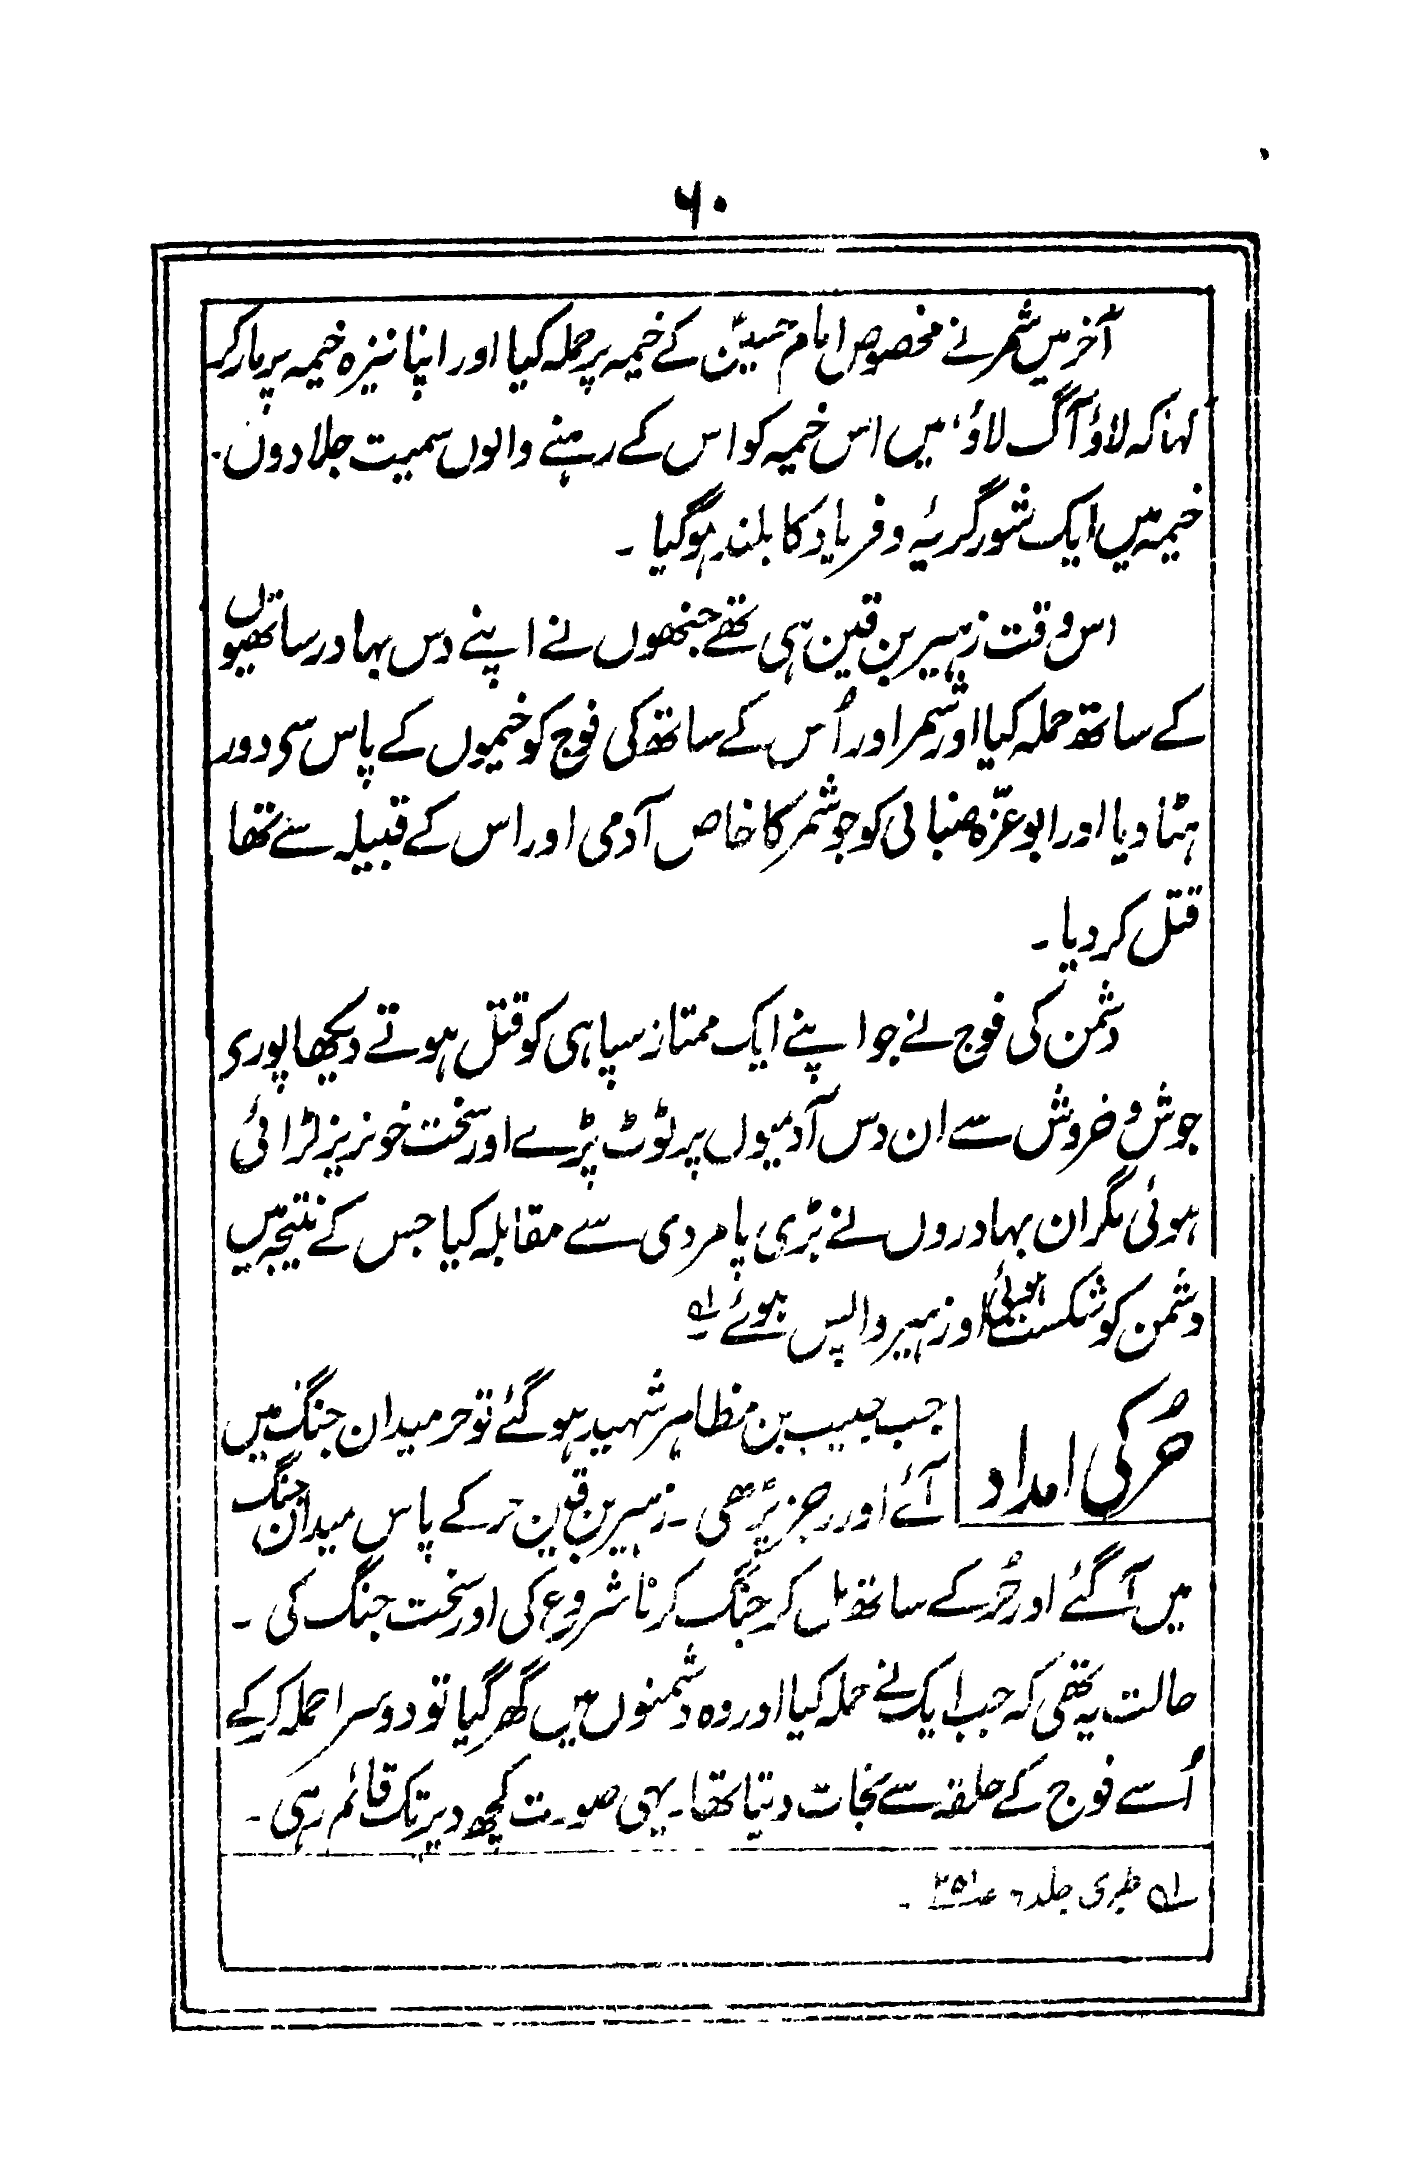 ۶۰
آخر میں شمر نے مخصوص امام حسینؑ کے خیمہ پر حملہ کیا اور اپنا نیزہ خیمہ پر مار کر
کہا کہ لاؤ آگ لاؤ، میں اس خیمہ کو اس کے رہنے والوں سمیت جلا دوں۔
خیمہ میں ایک شور گریۂ و فریاد کا بلند ہو گیا ۔
اس وقت زہیر بن قین ہی تھے جنھوں نے اپنے دس بہادر ساتھیوں
کے ساتھ حملہ کیا اور شمر اور اُس کے ساتھ کی فوج کو خیموں کے پاس سی دور
ہٹا دیا اور ابو عزّہ ضبابی کو جو شمر کا خاص آدمی اور اس کے قبیلہ سے تھا
قتل کر دیا ۔
دشمن کی فوج نے جو اپنے ایک ممتاز سپاہی کو قتل ہوتے دیکھا پوری
جوش و خروش سے ان دس آدمیوں پر ٹوٹ پڑے اور سخت خونریز لڑائی
ہوئی مگر ان بہادروں نے بڑی پامردی سے مقابلہ کیا جس کے نتیجہ میں
دشمن کو شکست ہوئی اور زہیر واپس ہوئے لہ
حُر کی امداد
جب حبیب بن مظاہر شہید ہو گئے تو حر میدان جنگ میں
آئے اور رجز پڑھی ۔ زہیر بن قین حر کے پاس میدان جنگ
میں آ گئے اور حُر کے ساتھ مل کر جنگ کرنا شروع کی اور سخت جنگ کی ۔
حالت یہ تھی کہ جب ایک نے حملہ کیا اور وہ دشمنوں میں گھر گیا تو دوسرا حملہ کر کے
اُسے فوج کے حلقہ سے نجات دیتا تھا۔ یہی صورت کچھ دیر تک قائم رہی ۔
لہ طبری جلد ۶ ص۲۵۱ ۔